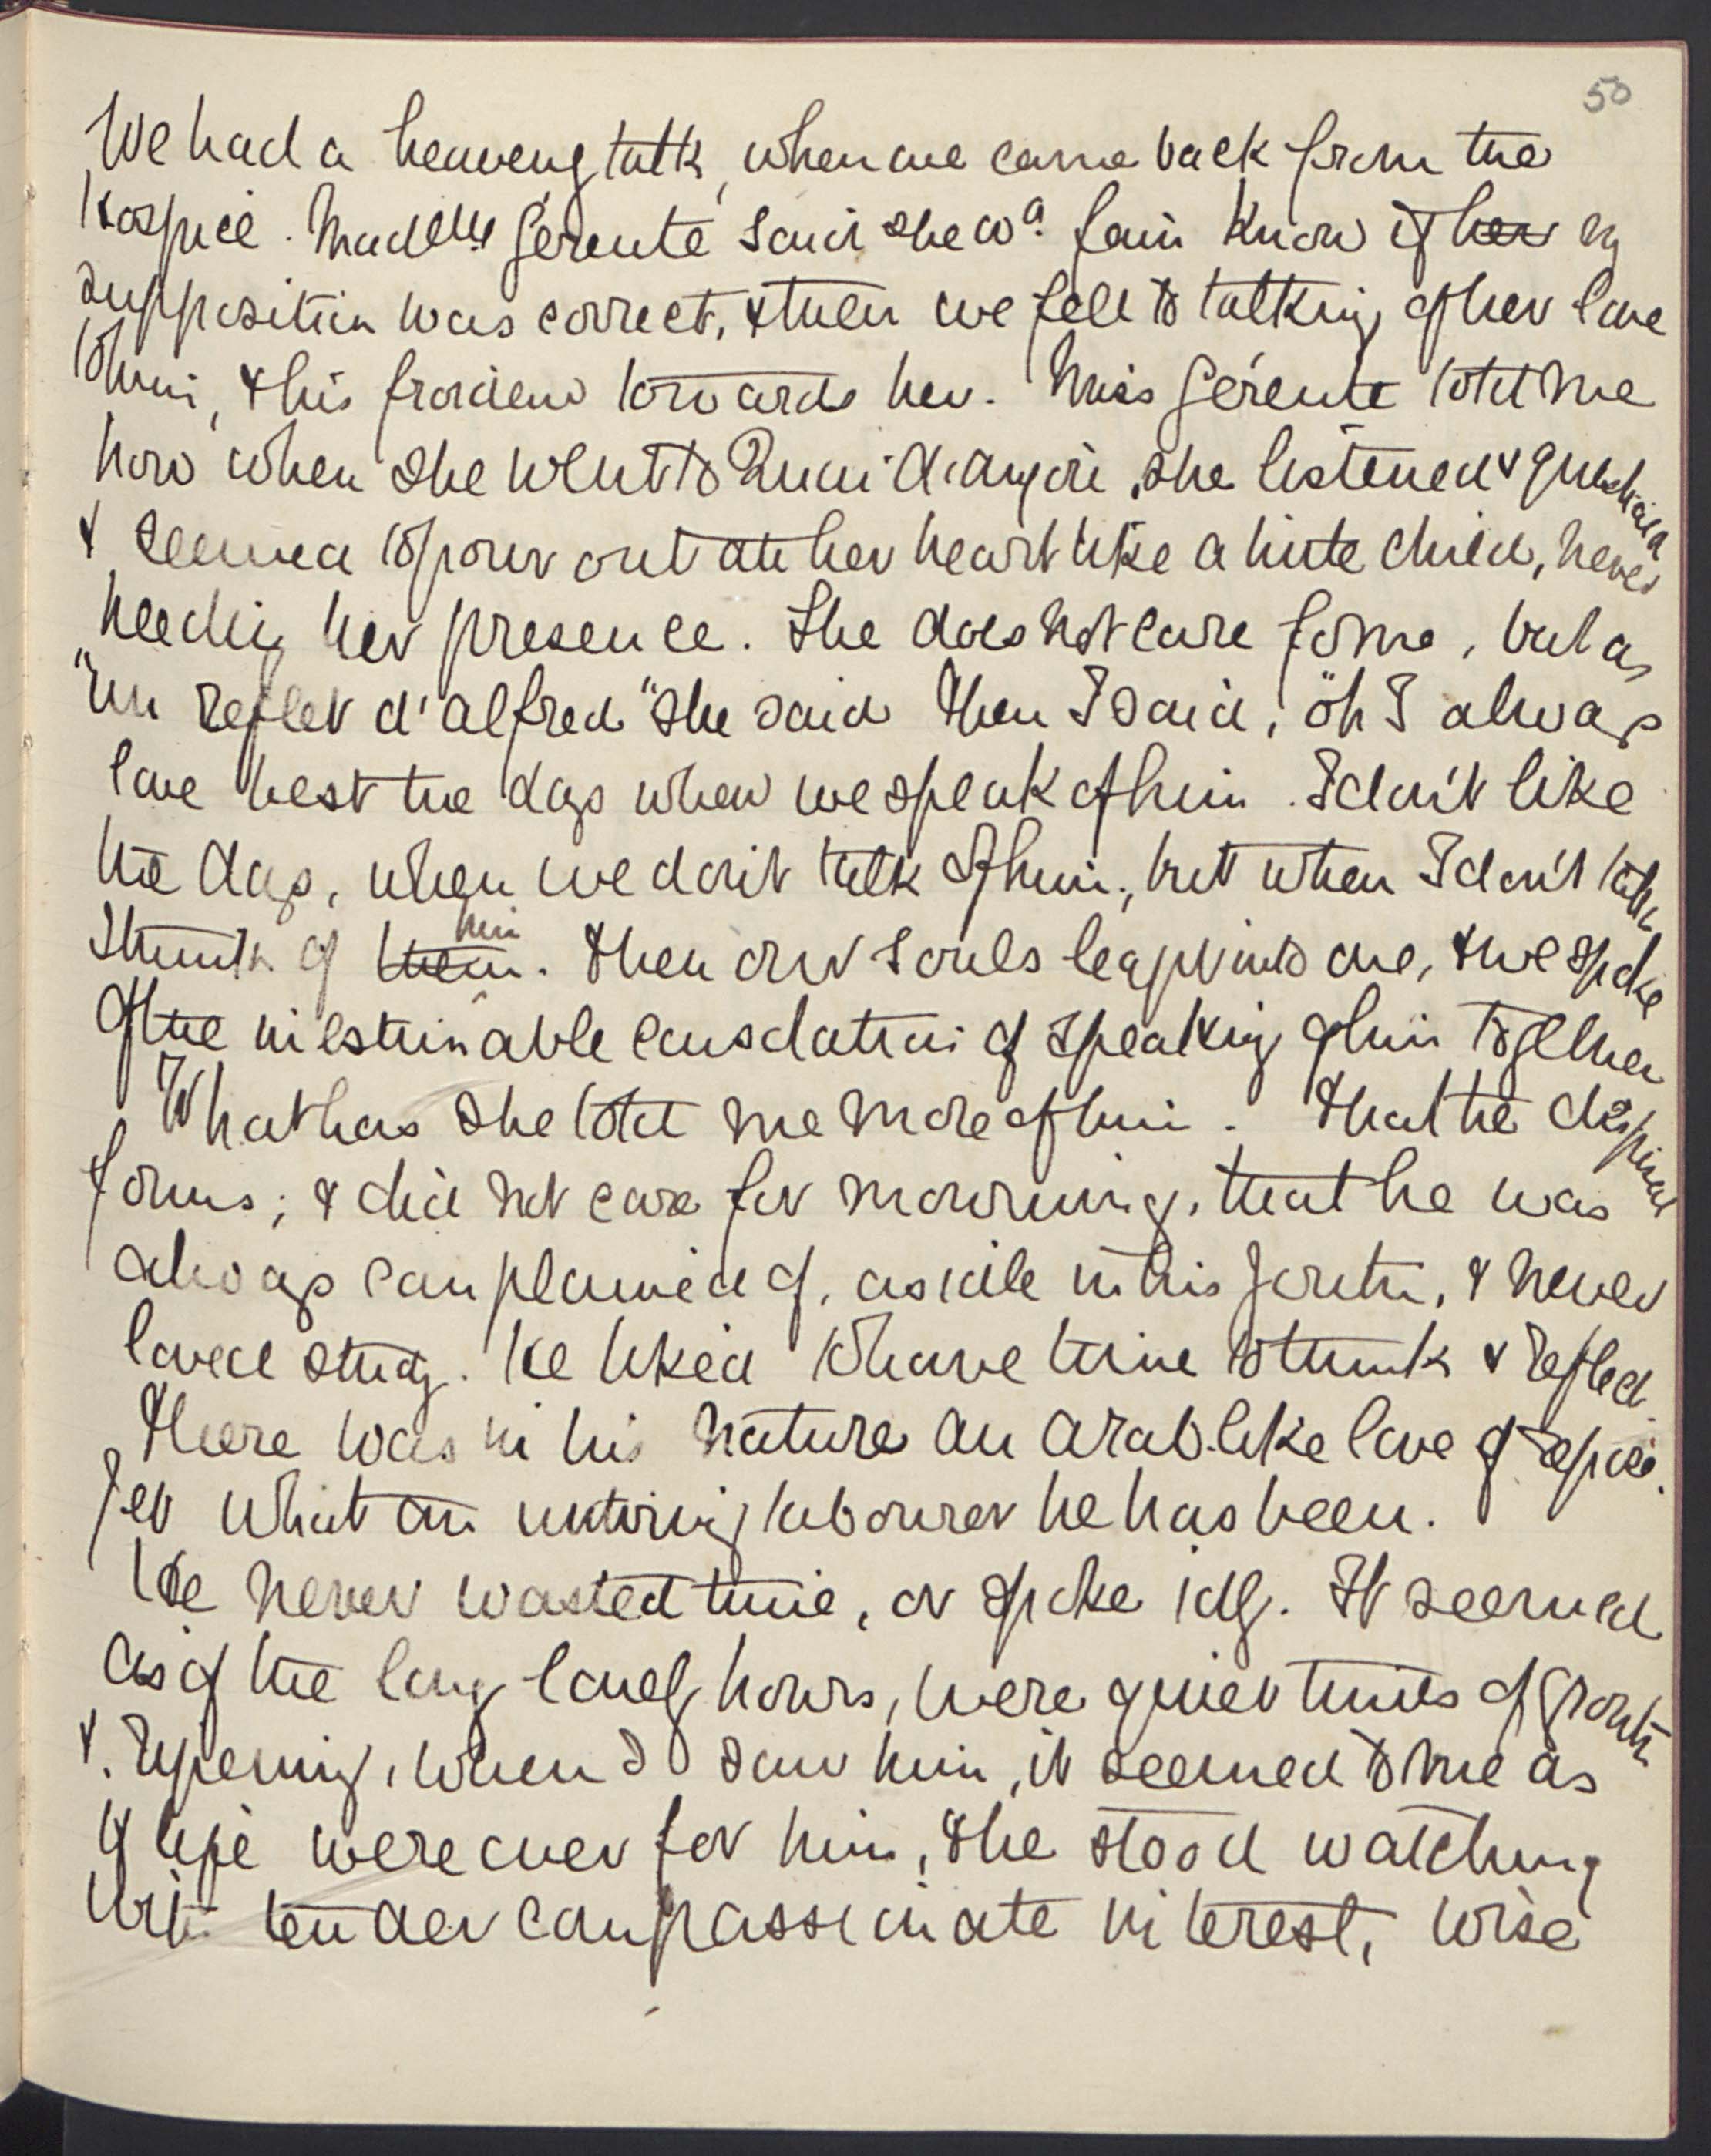 50
We had a heavenly talk, when we came back from the
Hospice. Madelle Gérente said she wd. fain know if her my
supposition was correct, & then we fell to talking of her love
to him, & his towards her. Miss Gérente told me
how when she went to Quai d'anjou, she listened & questioned
& seemed to pour out all her heart like a little child, never
heeding her presence. She does not care for me, but as
"un reflet d'alfred" she said then I said, "oh I always
love best the days when we speak of him. I don't like
the days, when we don't talk of him, but when I don't talk
I think of them him. Then our souls leapt into one, & we spoke
of the inestimable consolation of speaking of him together
What has she told me more of him. That he despised
forms; & did not care for mourning, that he was
always complained of, as idle in his youth, & never
loved study. He liked to have time to think & reflect.
There was in his nature an arab-like love of repose.
Yet what an untiring labourer he has been.
He never wasted time, or spoke idly. It seemed
as if the long lonely hours, were quiet times of growth
& ripening, when I saw him, it seemed to me as
if life were over for him, & he stood watching
with tender compassionate interest, wise